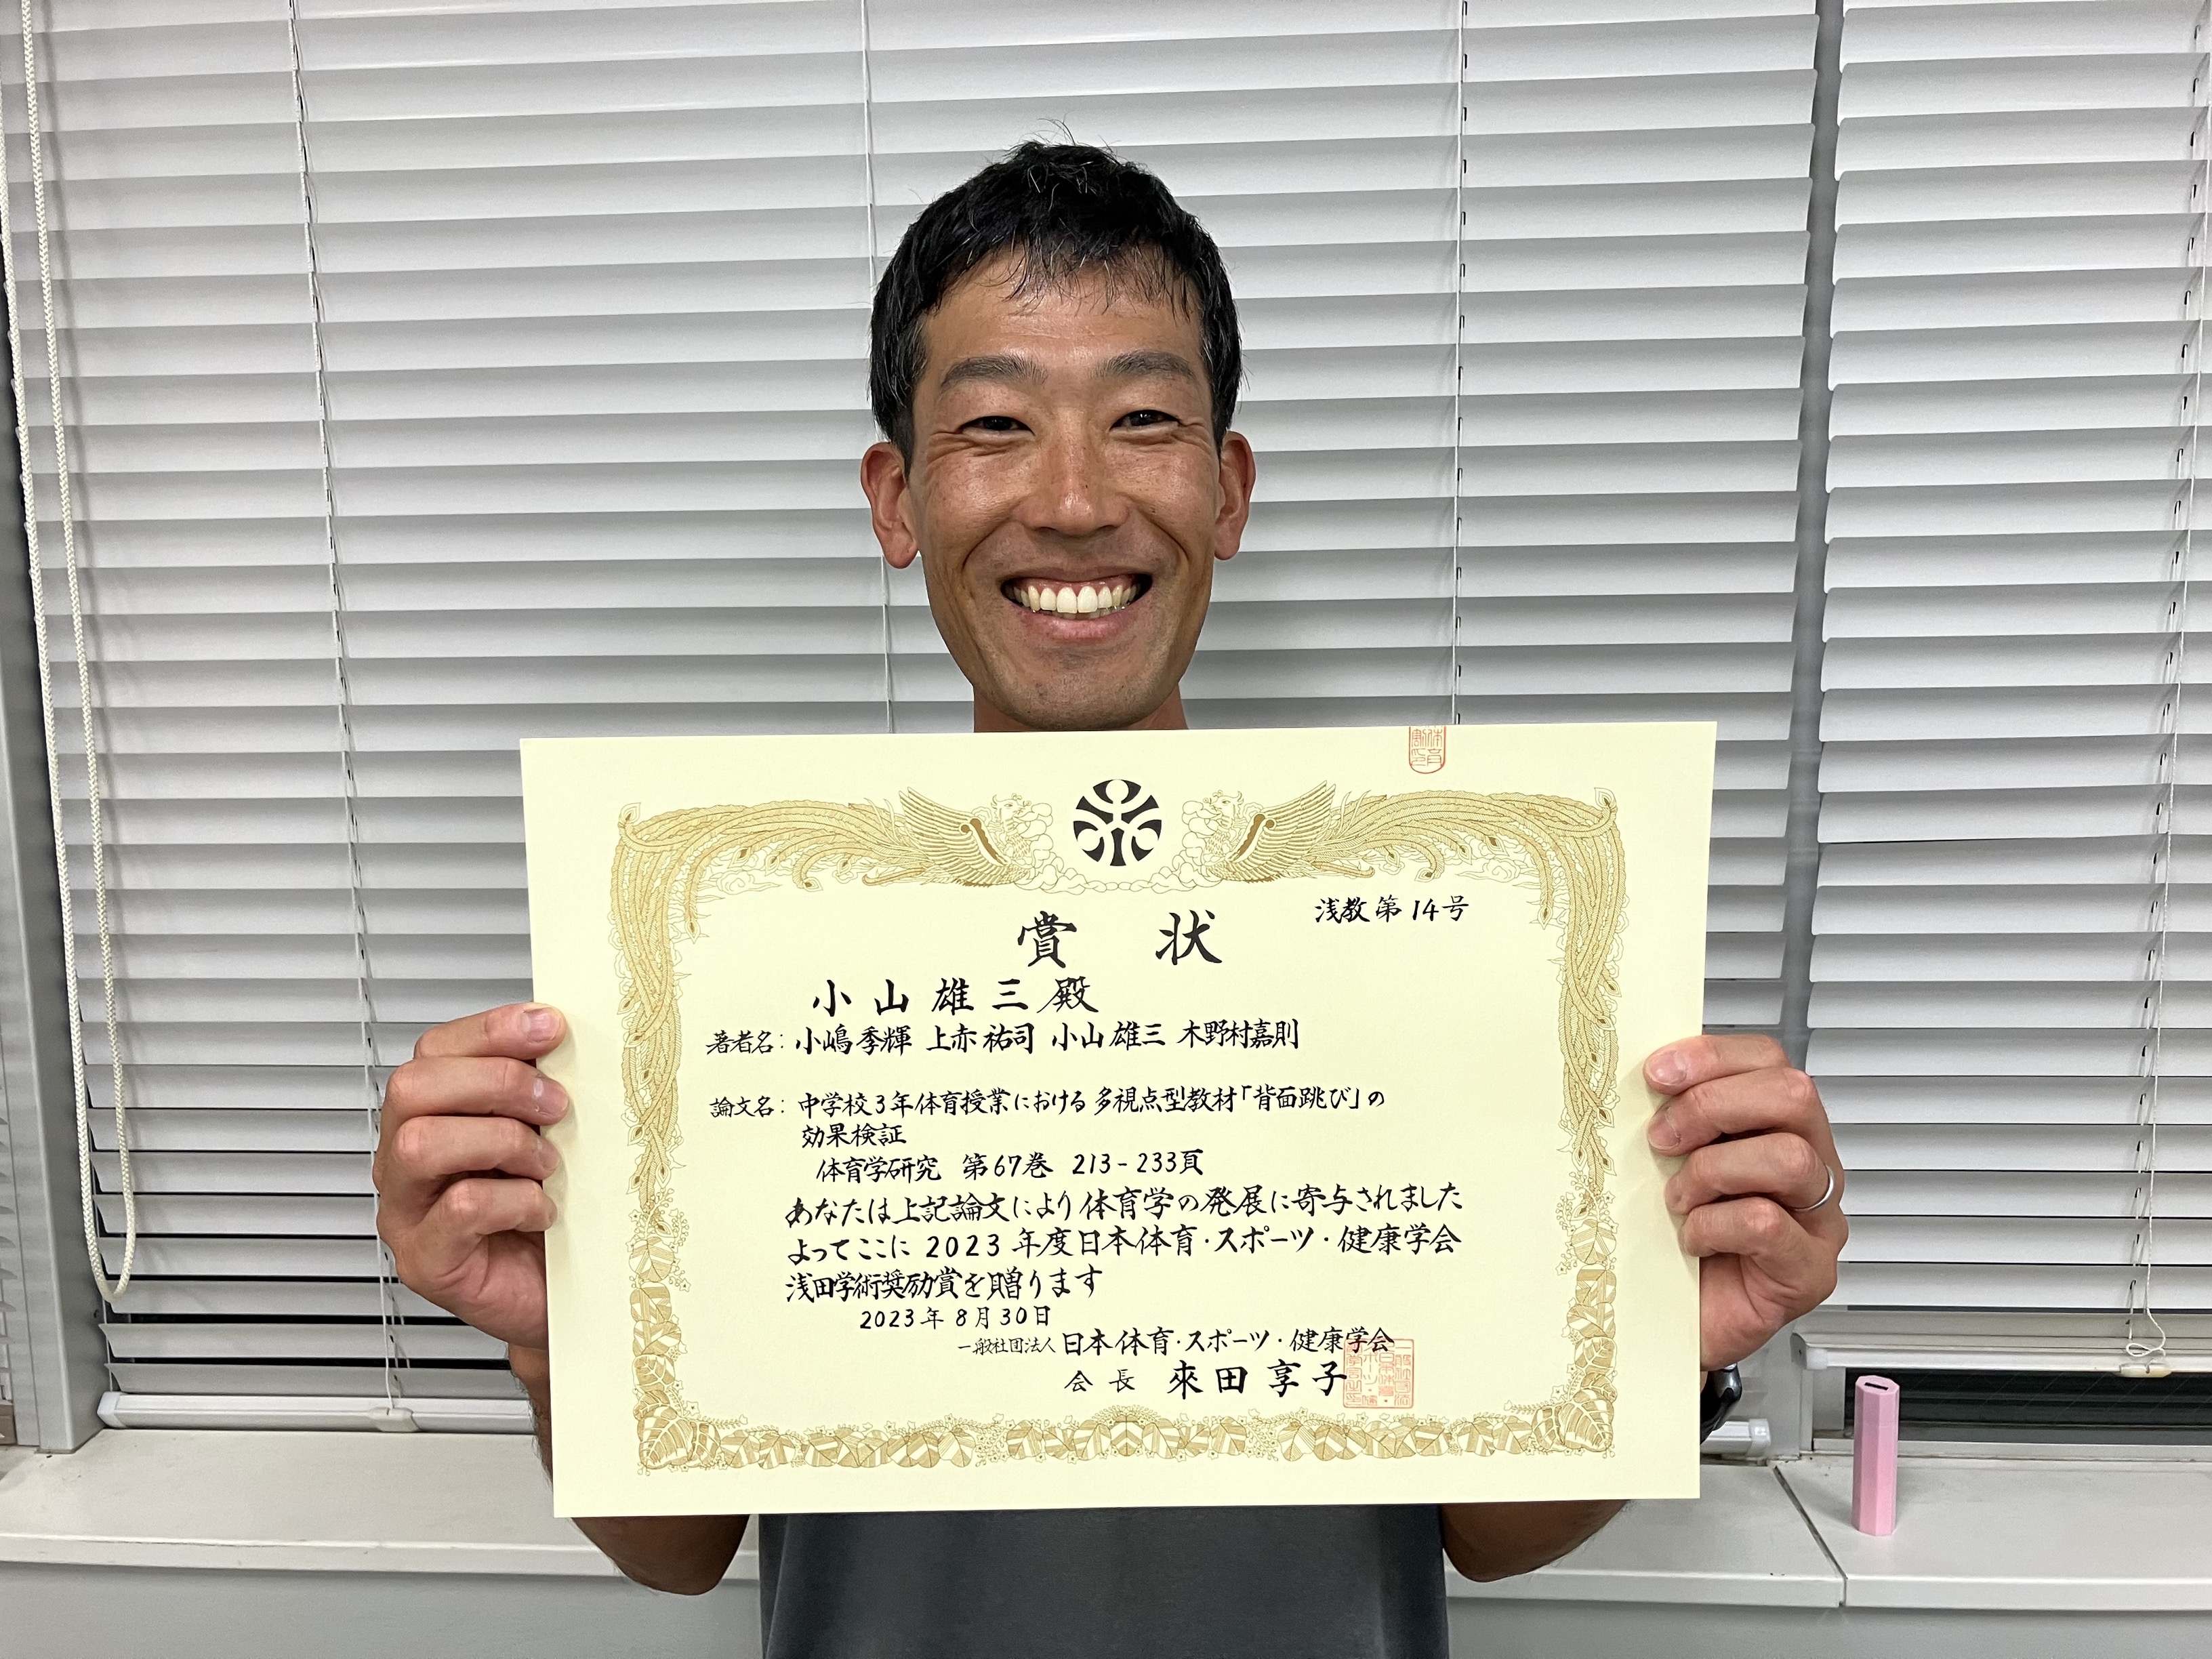 浅教第14号
賞状
小山雄三殿
著者名：小嶋季輝 上赤祐司 小山雄三 木野村嘉則
論文名：中学校3年体育授業における多視点型教材「背面跳び」の
効果検証
体育学研究 第67巻 213-233頁
あなたは上記論文により体育学の発展に寄与されました
よってここに2023年度日本体育・スポーツ・健康学会
浅田学術奨励賞を贈ります
2023年8月30日
一般社団法人日本体育・スポーツ・健康学会
会長 來田享子